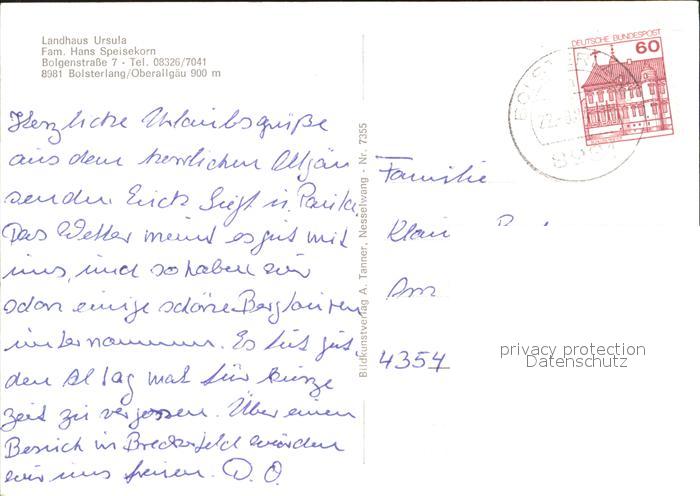 Landhaus Ursula
Fam. Hans Speisekorn
Bolgenstraße 7 - Tel. 08326/7041
8981 Bolsterlang/Oberallgäu 900 m
Herzliche Urlaubsgrüße
aus dem herrlichen Allgäu
senden Euch
Das Wetter meint es gut mit
uns, und so haben wir
schon einige schöne Bergtouren
unternommen. Es tut gut
den Alltag mal für kurze
Zeit zu vergessen. Über einen
Besuch in Breckerfeld würden
wir uns freuen. D. O.
Bildkunstverlag A. Tanner, Nesselwang - Nr. 7355
DEUTSCHE BUNDESPOST
60
8981
Familie
Am
4354
privacy protection
Datenschutz